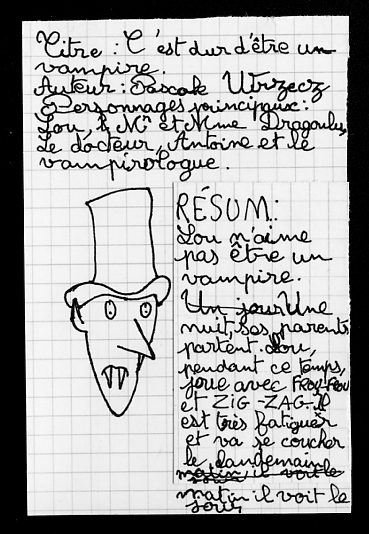 Titre : C'est dur d'être un
vampire.
Auteur : Pascale Wrzecz
Personnages principaux :
Lou, Mr et Mme Dragoulus,
Le docteur, Antoine et le
vampirologue.
RÉSUM:
Lou n'aime
pas être un
vampire.
Un jour Une
nuit, ses parents
partent. Lou,
pendant ce temps,
joue avec FROU-FROU
et ZIG-ZAG. Il
est très fatiguér
et va se coucher
le landemain
matin, il voit le
matin il voit le
jour,